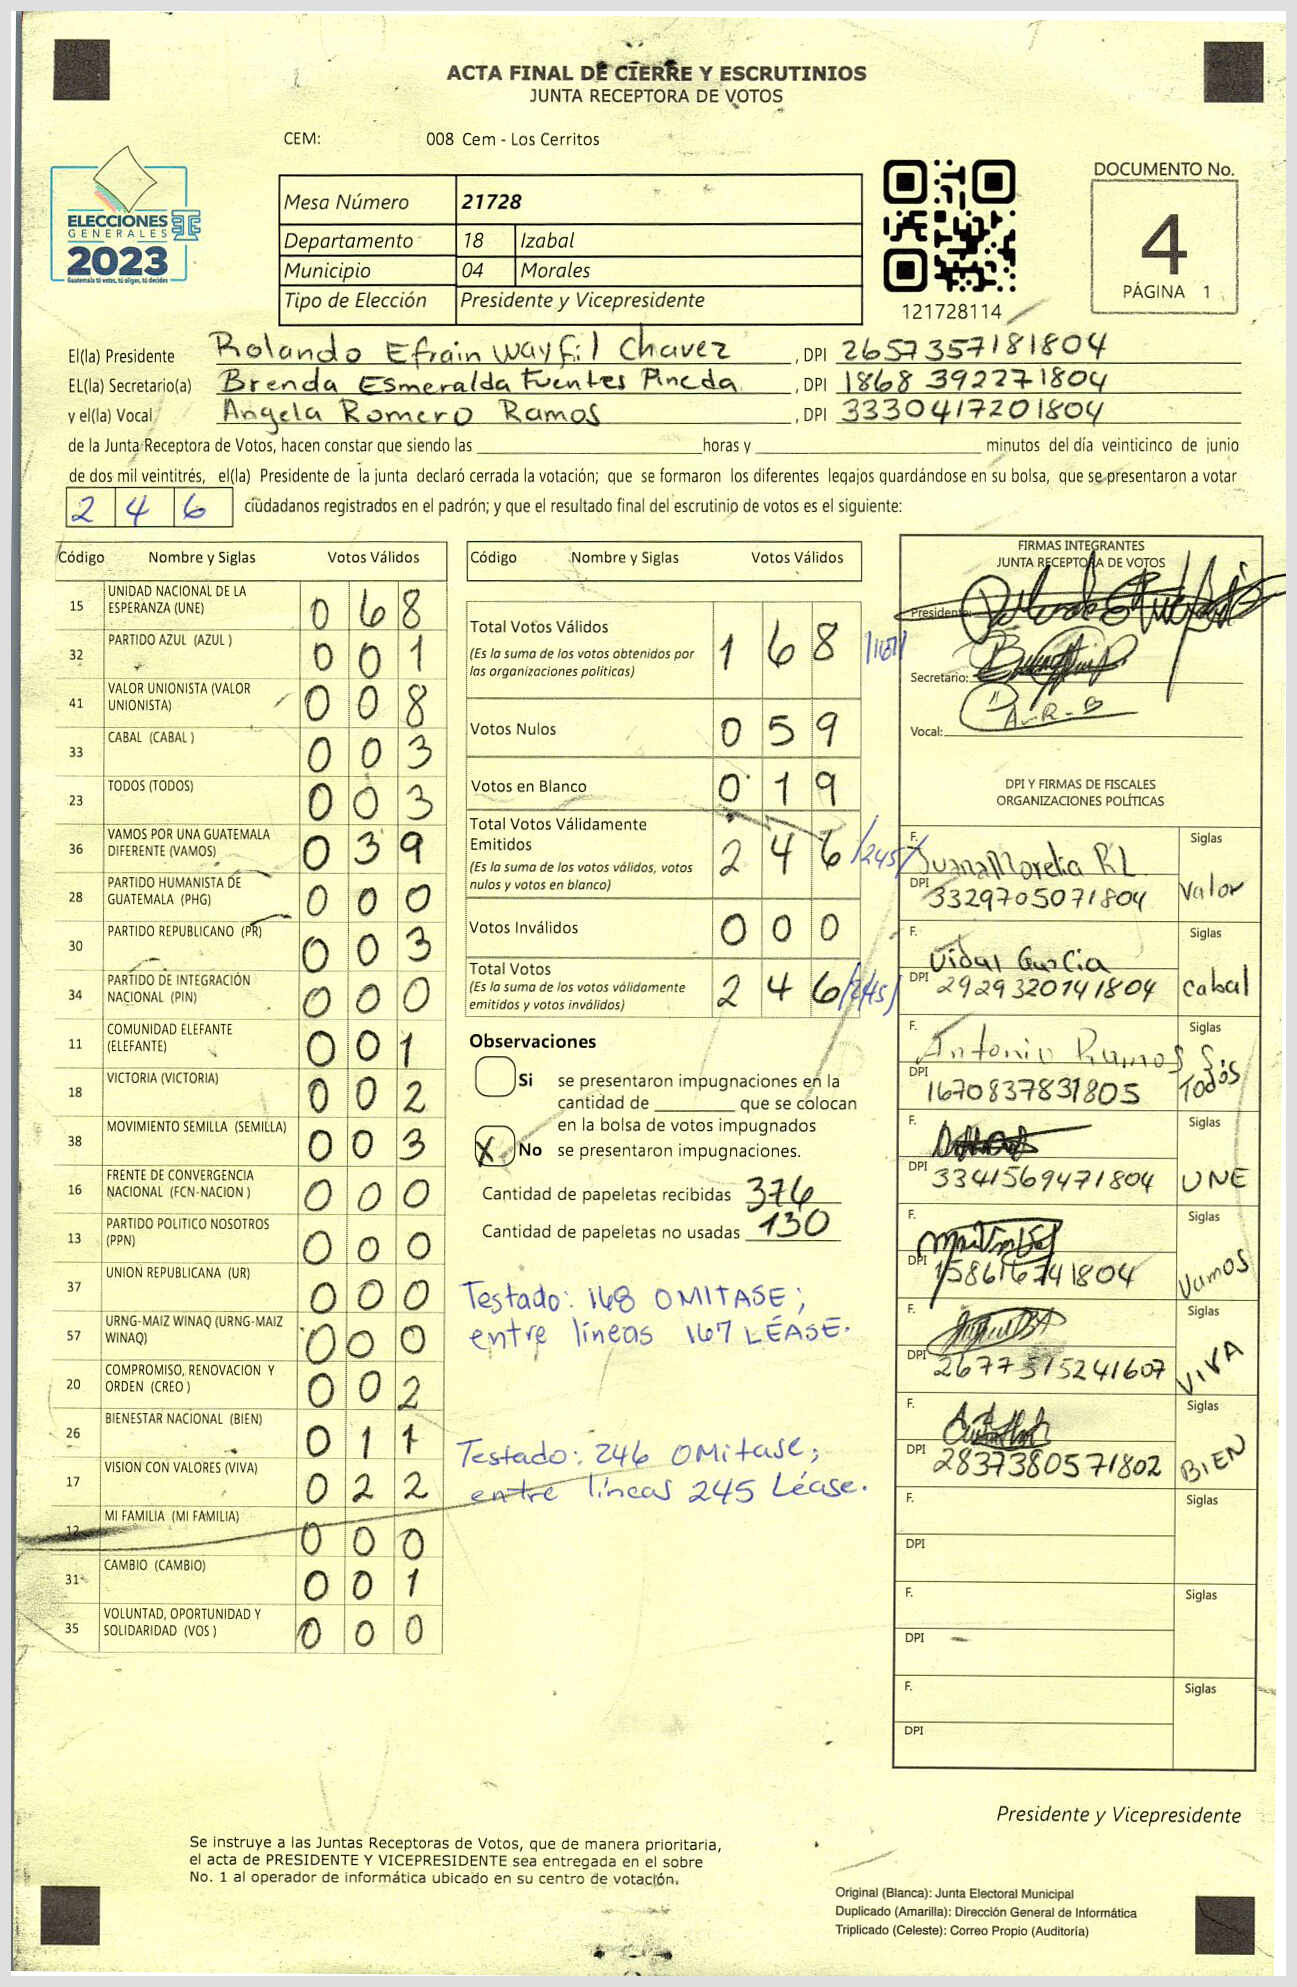 ACTA FINAL DE CIERRE Y ESCRUTINIOS
JUNTA RECEPTORA DE VOTOS
CEM: 008 Cem - Los Cerritos
ELECCIONES
GENERALES
2023
Guatemala tú votes, tú eliges, tú decides
Mesa Número 21728
Departamento 18 Izabal
Municipio 04 Morales
Tipo de Elección Presidente y Vicepresidente
121728114
DOCUMENTO No.
4
PÁGINA 1
El(la) Presidente Rolando Efrain Wayfil Chavez , DPI 2657357181804
EL(la) Secretario(a) Brenda Esmeralda Fuentes Pineda , DPI 1868 392271804
y el(la) Vocal Angela Romero Ramos , DPI 3330417201804
de la Junta Receptora de Votos, hacen constar que siendo las horas y minutos del día veinticinco de junio
de dos mil veintitrés, el(la) Presidente de la junta declaró cerrada la votación; que se formaron los diferentes legajos quardándose en su bolsa, que se presentaron a votar
2 4 6 ciudadanos registrados en el padrón; y que el resultado final del escrutinio de votos es el siguiente:
Código Nombre y Siglas Votos Válidos
15 UNIDAD NACIONAL DE LA ESPERANZA (UNE) 0 6 8
32 PARTIDO AZUL (AZUL ) 0 0 1
41 VALOR UNIONISTA (VALOR UNIONISTA) 0 0 8
33 CABAL (CABAL ) 0 0 3
23 TODOS (TODOS) 0 0 3
36 VAMOS POR UNA GUATEMALA DIFERENTE (VAMOS) 0 3 9
28 PARTIDO HUMANISTA DE GUATEMALA (PHG) 0 0 0
30 PARTIDO REPUBLICANO (PR) 0 0 3
34 PARTIDO DE INTEGRACIÓN NACIONAL (PIN) 0 0 0
11 COMUNIDAD ELEFANTE (ELEFANTE) 0 0 1
18 VICTORIA (VICTORIA) 0 0 2
38 MOVIMIENTO SEMILLA (SEMILLA) 0 0 3
16 FRENTE DE CONVERGENCIA NACIONAL (FCN-NACION ) 0 0 0
13 PARTIDO POLITICO NOSOTROS (PPN) 0 0 0
37 UNION REPUBLICANA (UR) 0 0 0
57 URNG-MAIZ WINAQ (URNG-MAIZ WINAQ) 0 0 0
20 COMPROMISO, RENOVACION Y ORDEN (CREO ) 0 0 2
26 BIENESTAR NACIONAL (BIEN) 0 1 1
17 VISION CON VALORES (VIVA) 0 2 2
12 MI FAMILIA (MI FAMILIA) 0 0 0
31 CAMBIO (CAMBIO) 0 0 1
35 VOLUNTAD, OPORTUNIDAD Y SOLIDARIDAD (VOS ) 0 0 0
Código Nombre y Siglas Votos Válidos
Total Votos Válidos 1 6 8 /167/
(Es la suma de los votos obtenidos por
las organizaciones politicas)
Votos Nulos 0 5 9
Votos en Blanco 0 1 9
Total Votos Válidamente
Emitidos 2 4 6 /245/
(Es la suma de los votos válidos, votos
nulos y votos en blanco)
Votos Inválidos 0 0 0
Total Votos 2 4 6 /245/
(Es la suma de los votos válidamente
emitidos y votos inválidos)
Observaciones
Si se presentaron impugnaciones en la
cantidad de que se colocan
en la bolsa de votos impugnados
X No se presentaron impugnaciones.
Cantidad de papeletas recibidas 376
Cantidad de papeletas no usadas 130
Testado: 168 OMITASE;
entre líneas 167 LÉASE.
Testado: 246 OMitase;
entre líneas 245 Léase.
FIRMAS INTEGRANTES
JUNTA RECEPTORA DE VOTOS
Presidente:
Secretario:
Vocal: A-R-
DPI Y FIRMAS DE FISCALES
ORGANIZACIONES POLÍTICAS
F. Siglas
DPI 3329705071804 Valor
F. Vidal Garcia Siglas
DPI 2929320141804 Cabal
F. Antonio Ramos S. Siglas
DPI 1670837831805 TODOS
F. Siglas
DPI 3341569471804 UNE
F. Siglas
DPI 158616741804 Vamos
F. Siglas
DPI 2677515241607 VIVA
F. Siglas
DPI 2837380571802 BIEN
F. Siglas
DPI
F. Siglas
DPI
F. Siglas
DPI
Presidente y Vicepresidente
Se instruye a las Juntas Receptoras de Votos, que de manera prioritaria,
el acta de PRESIDENTE Y VICEPRESIDENTE sea entregada en el sobre
No. 1 al operador de informática ubicado en su centro de votación.
Original (Blanca): Junta Electoral Municipal
Duplicado (Amarilla): Dirección General de Informática
Triplicado (Celeste): Correo Propio (Auditoría)